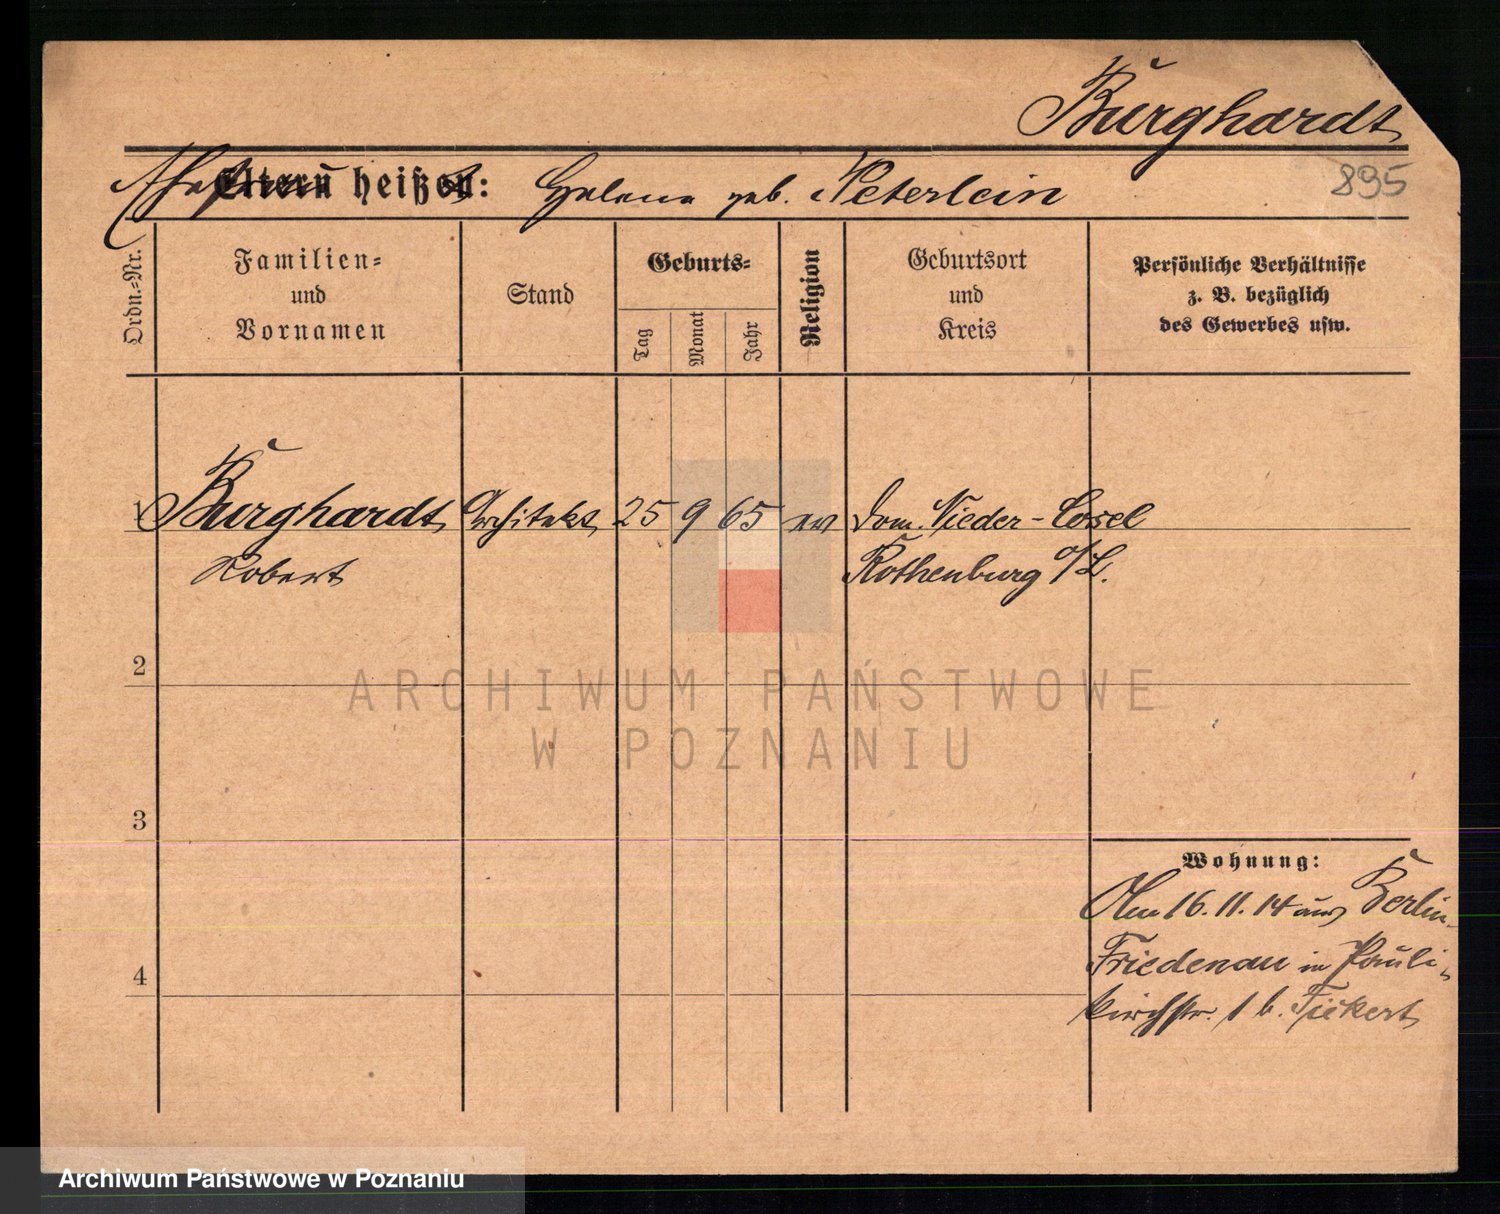 Burghardt
895
Ehefrau heißt: Helene geb. Peterlein
Ordn.-Nr.
Familien-
und
Vornamen
Stand
Geburts-
Tag
Monat
Jahr
Religion
Geburtsort
und
Kreis
Persönliche Verhältnisse
z. B. bezüglich
des Gewerbes usw.
1 Burghardt Architekt 25 9 65 ev Dom. Nieder-Cosel
Robert Rothenburg o/L.
2
ARCHIWUM PAŃSTWOWE
W POZNANIU
3
Wohnung:
Am 16.11.14 aus Berlin-
Friedenau in Pauli-
4
kirchstr. 1 b. Fickert
Archiwum Państwowe w Poznaniu